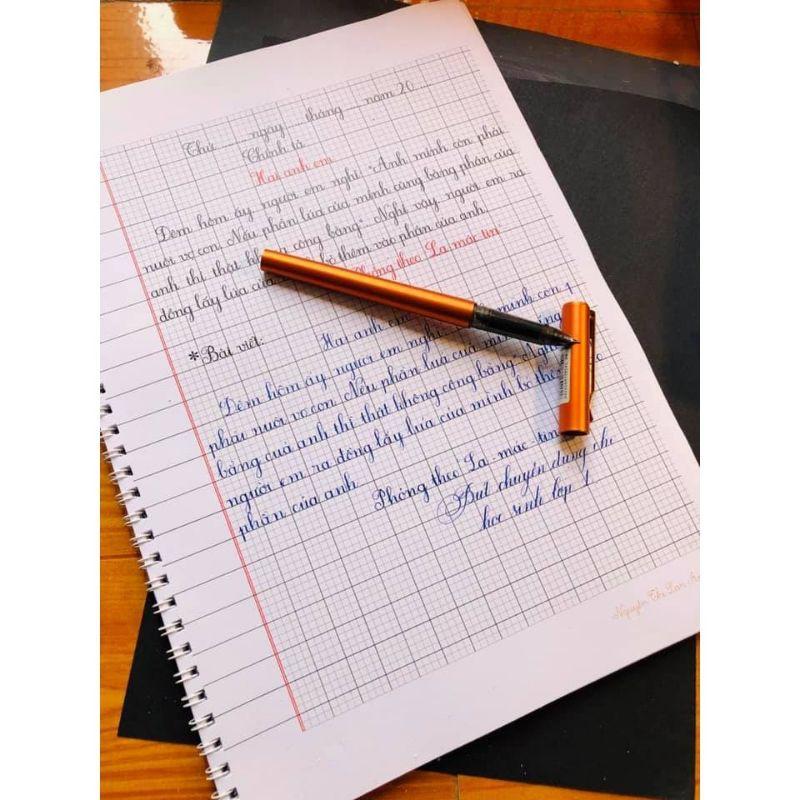 Thứ ...... ngày ...... tháng ...... năm 20......
Chính tả
Hai anh em
Đêm hôm ấy, người em nghĩ: "Anh mình còn phải
nuôi vợ con. Nếu phần lúa của mình cũng bằng phần của
anh thì thật công bằng". Nghĩ vậy, người em ra
đồng lấy lúa của bỏ thêm vào phần của anh.
Phỏng theo La-mác-tin
*Bài viết:
Hai anh em
Đêm hôm ấy, người em nghĩ mình còn
phải nuôi vợ con. Nếu phần lúa của
bằng của anh thì thật không công bằng". Nghĩ
người em ra đồng lấy lúa của mình bỏ
phần của anh.
Phỏng theo La-mác-tin
Bút chuyên dùng
học sinh lớp 1
Nguyễn Thị Lan